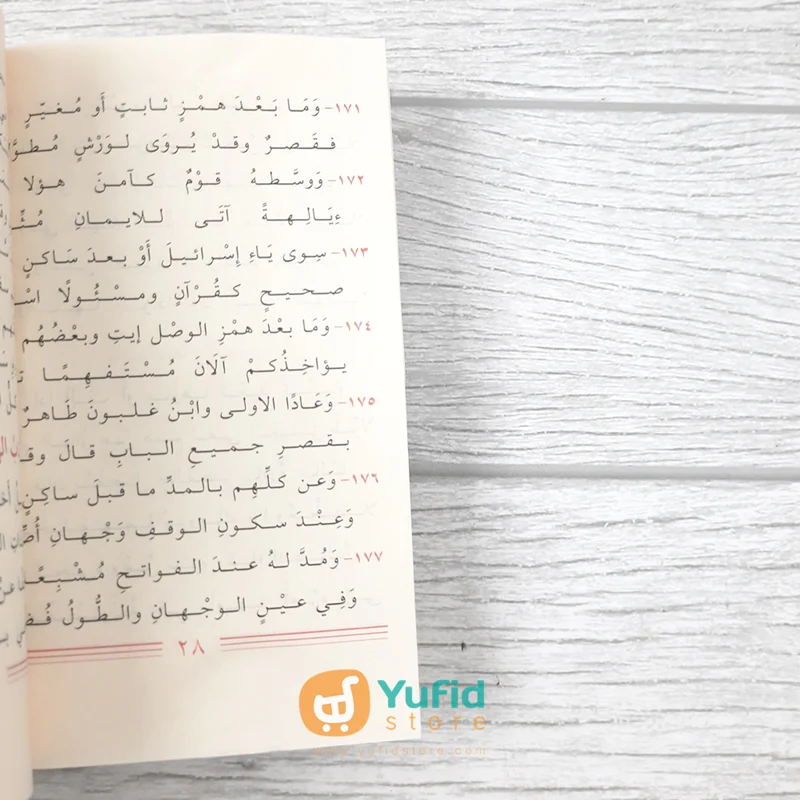 ١٧١- وَمَا بَعْدَ هَمْزٍ ثَابتٍ أَو مُغيّرٍ
فقَصرٌ وقدْ يُروَى لوَرْشٍ
١٧٢- وَوسَّطهُ قومٌ كآمنَ هؤلا
ءِيَالِهةً آتَى للايمانِ
١٧٣- سِوى يَاءِ إِسْرائيلَ أَوْ بعدَ سَاكنٍ
صحيحٍ كقُرْآنٍ ومسْئُولًا
١٧٤- وَمَا بعْدَ همْزِ الوصْل إيتِ وبعْضُهُم
يؤاخِذُكمْ آلَانَ مُسْتَفهِمًا
١٧٥- وَعَادًا الاولى وابْنُ غلبونَ طَاهرٌ
بقصرِ جميعِ البابِ قالَ
١٧٦- وَعَن كلِّهِم بالمدِّ ما قبلَ ساكِنٍ
وَعِنْدَ سكونِ الوقفِ وَجْهانِ
١٧٧- وَمُدَّ لهُ عندَ الفواتحِ مُشْبِعًا
وَفِي عيْنٍ الوجْهانِ والطُّولُ
٢٨
Yufid
store
www.yufidstore.com